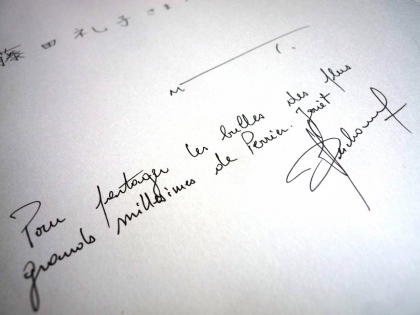 藤田礼子さま
Pour partager les bulles des plus
grands millésimes de Perrier-Jouët